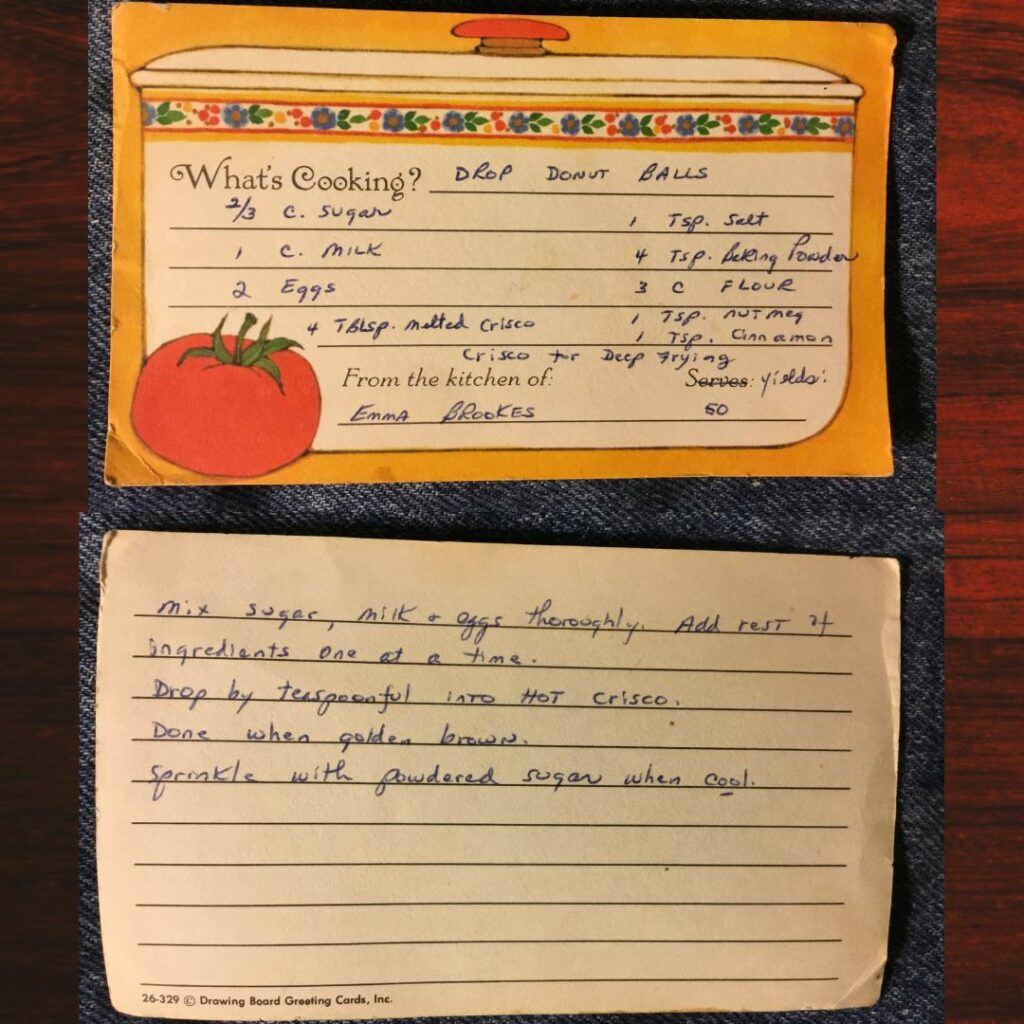 What's Cooking? DROP DONUT BALLS
2/3 C. Sugar 1 Tsp. Salt
1 C. MILK 4 Tsp. Baking Powder
2 Eggs 3 C FLOUR
4 TBLsp. melted Crisco 1 Tsp. nutmeg
1 Tsp. Cinnamon
Crisco for Deep Frying
From the kitchen of: Serves: yields:
Emma BROOKES 50
Mix sugar, milk + eggs thoroughly. Add rest of
ingredients one at a time.
Drop by teaspoonful into HOT Crisco.
Done when golden brown.
Sprinkle with powdered sugar when cool.
26-329 © Drawing Board Greeting Cards, Inc.